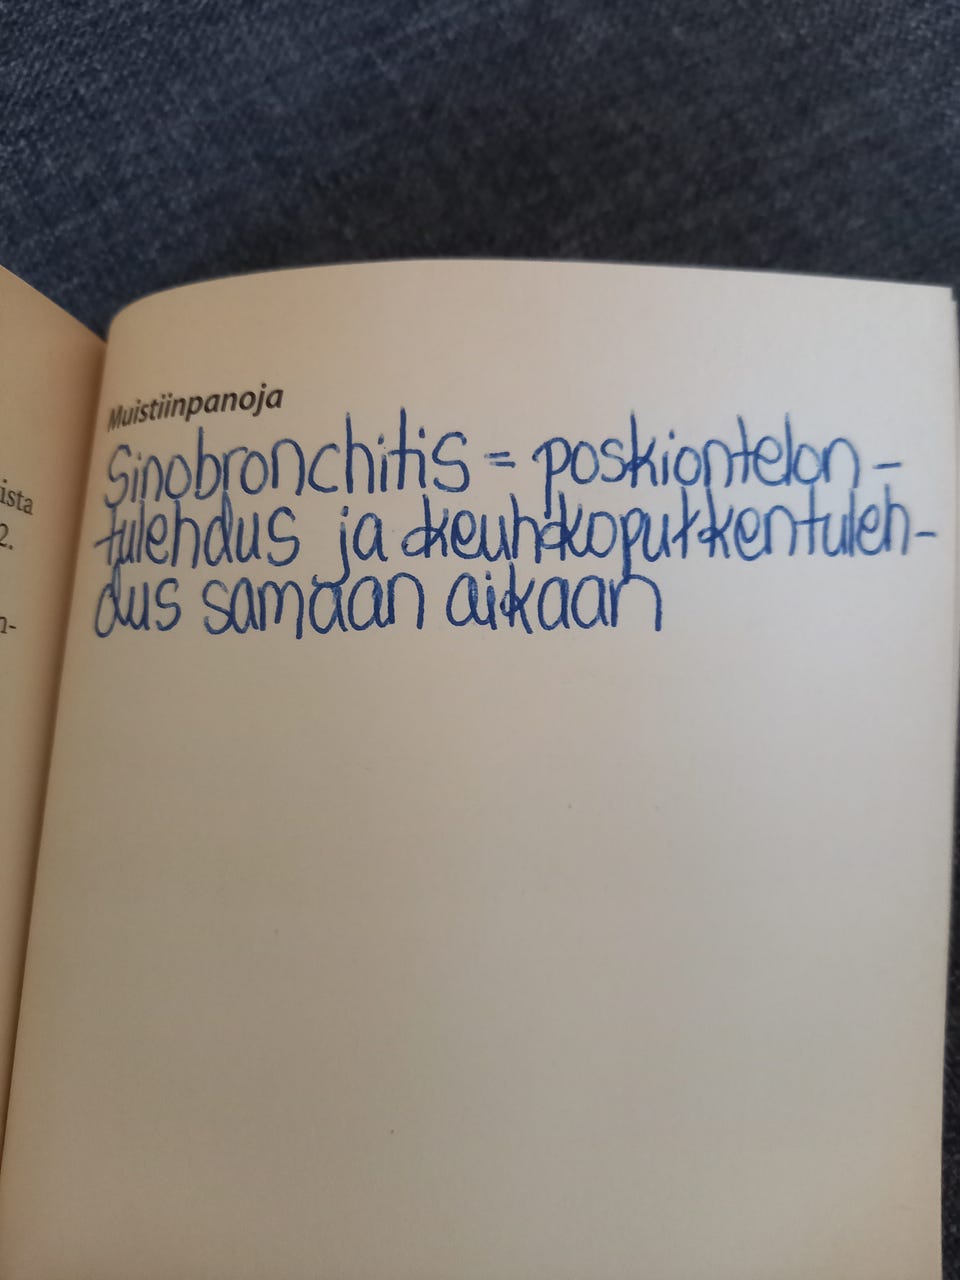 Muistiinpanoja
Sinobronchitis = poskiontelon-
tulehdus ja keuhkoputkentuleh-
dus samaan aikaan
ista
2.
n-